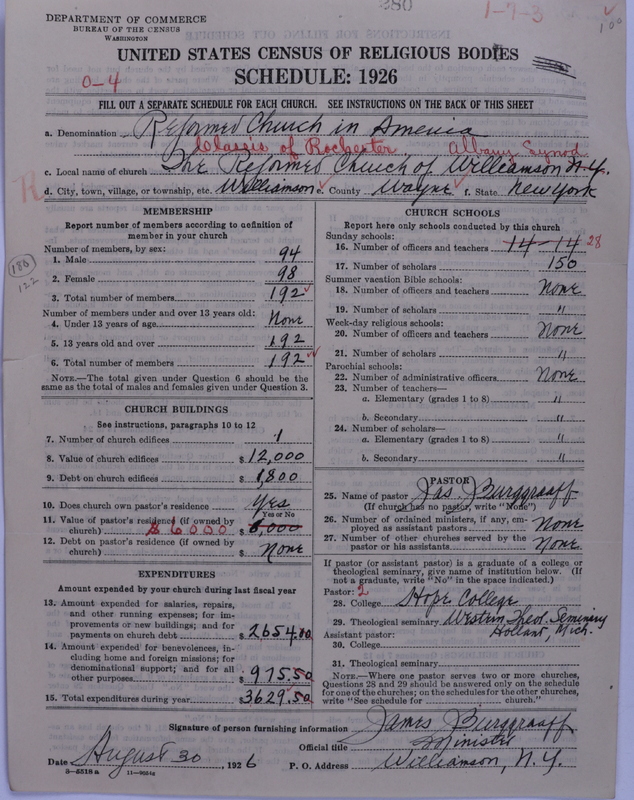 280
1-7-3
100
DEPARTMENT OF COMMERCE
BUREAU OF THE CENSUS
WASHINGTON
UNITED STATES CENSUS OF RELIGIOUS BODIES
SCHEDULE: 1926
0-4
FILL OUT A SEPARATE SCHEDULE FOR EACH CHURCH. SEE INSTRUCTIONS ON THE BACK OF THIS SHEET
a. Denomination Reformed Church in America
Classis of Rochester Albany Synod
c. Local name of church The Reformed Church of Williamson N.Y.
R
d. City, town, village, or township, etc. Williamson e. County Wayne f. State New York
MEMBERSHIP
Report number of members according to definition of
member in your church
Number of members, by sex:
1. Male 94
2. Female 98
3. Total number of members 192
186
122
Number of members under and over 13 years old:
4. Under 13 years of age None
5. 13 years old and over 192
6. Total number of members 192
NOTE.—The total given under Question 6 should be
same as the total of males and females given under Question 3.
CHURCH BUILDINGS
See instructions, paragraphs 10 to 12
7. Number of church edifices 1
8. Value of church edifices $ 12,000
9. Debt on church edifices $ 1,800
10. Does church own pastor's residence Yes
Yes or No
11. Value of pastor's residence (if owned by
church) $6000 $ 6,000
12. Debt on pastor's residence (if owned by
church) $ None
EXPENDITURES
Amount expended by your church during last fiscal year
13. Amount expended for salaries, repairs,
and other running expenses; for im-
provements or new buildings; and for
payments on church debt $ 2654.00
14. Amount expended for benevolences, in-
cluding home and foreign missions; for
denominational support; and for all
other purposes $ 975.50
15. Total expenditures during year $ 3629.50
CHURCH SCHOOLS
Report here only schools conducted by this church
Sunday schools:
16. Number of officers and teachers 14-14 28
17. Number of scholars 150
Summer vacation Bible schools:
18. Number of officers and teachers None
19. Number of scholars "
Week-day religious schools:
20. Number of officers and teachers None
21. Number of scholars "
Parochial schools:
22. Number of administrative officers None
23. Number of teachers—
a. Elementary (grades 1 to 8) "
b. Secondary "
24. Number of scholars—
a. Elementary (grades 1 to 8) "
b. Secondary "
PASTOR
25. Name of pastor Jas. Burggraaff
(If church has no pastor, write "None")
26. Number of ordained ministers, if any, em-
ployed as assistant pastors None
27. Number of other churches served by the
pastor or his assistants None
If pastor (or assistant pastor) is a graduate of a college or
theological seminary, give name of institution below. (If
not a graduate, write "No" in the space indicated.)
Pastor: 2
28. College Hope College
29. Theological seminary Western Theol. Seminary
Assistant pastor: Holland, Mich.
30. College
31. Theological seminary
NOTE.—Where one pastor serves two or more churches,
Questions 28 and 29 should be answered only on the schedule
for one of the churches; on the schedules for the other churches,
write "See schedule for church."
Signature of person furnishing information James Burggraaff
Official title Minister
Date August 30, 1926 P. O. Address Williamson, N.Y.
3-5518 a 11-9034